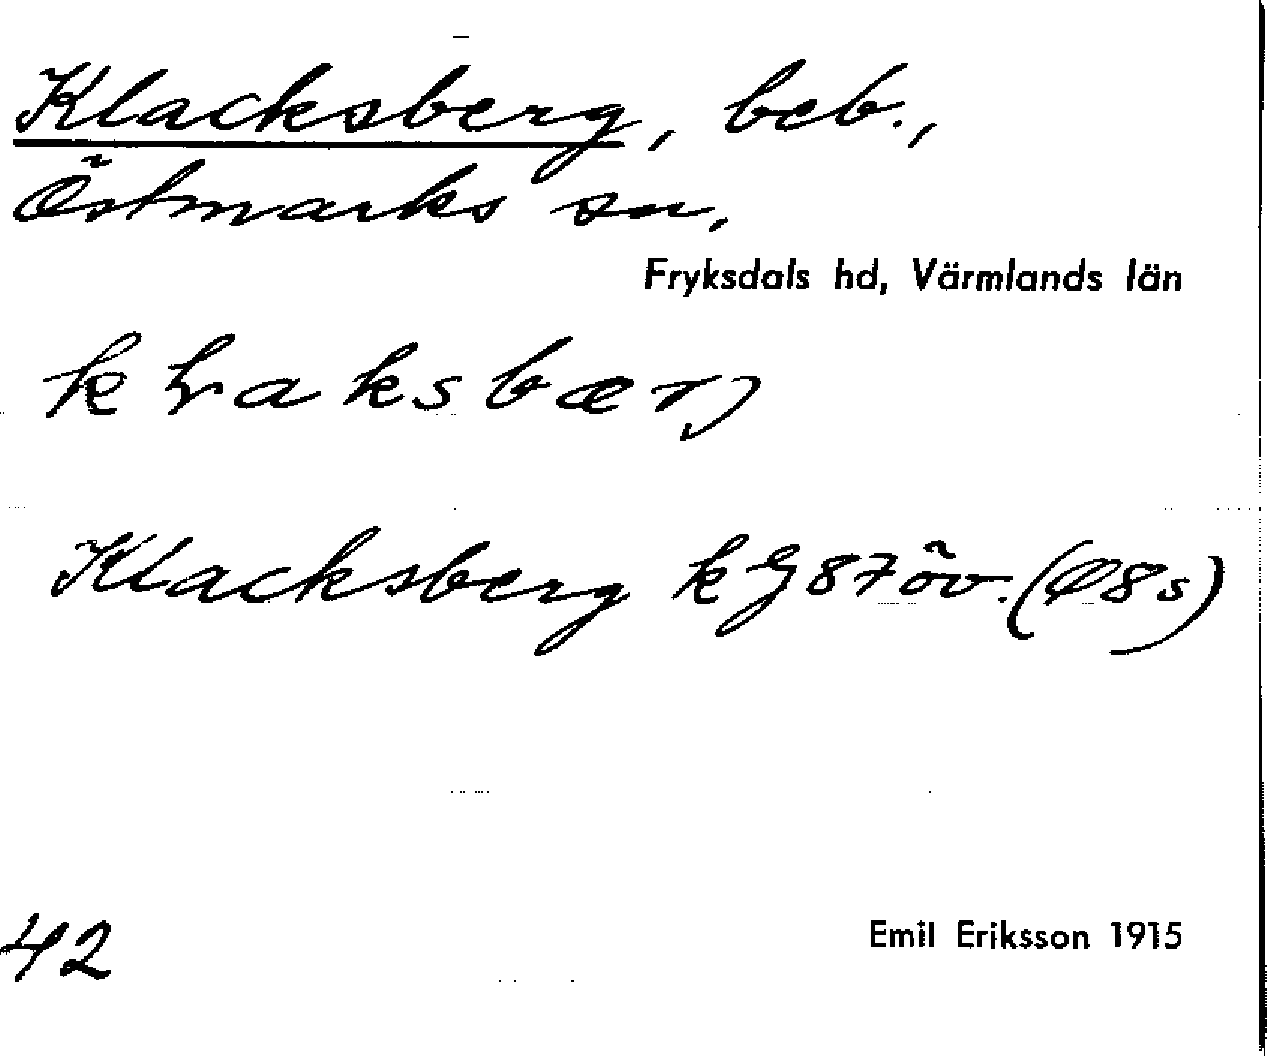 Klacksberg, beb.,
Östmarks sn,
Fryksdals hd, Värmlands län
Klacksberg k G 87 öv. (Ø8s)
42
Emil Eriksson 1915